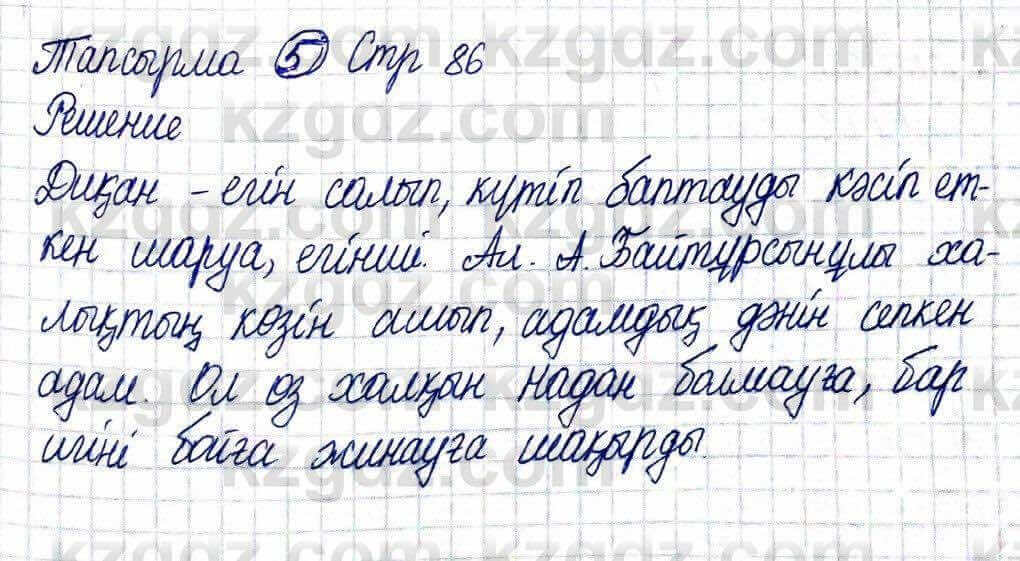 Тапсырма 5 Стр 86
Решение
Диқан - егін салып, күтіп баптауды кәсіп ет-
кен шаруа, егінші. Ал. А. Байтұрсынұлы ха-
лықтың көзін ашып, адамдық дәнін сепкен
адам. Ол өз халқын надан болмауға, бар
игіні бойға жинауға шақырды.
kzgdz.com